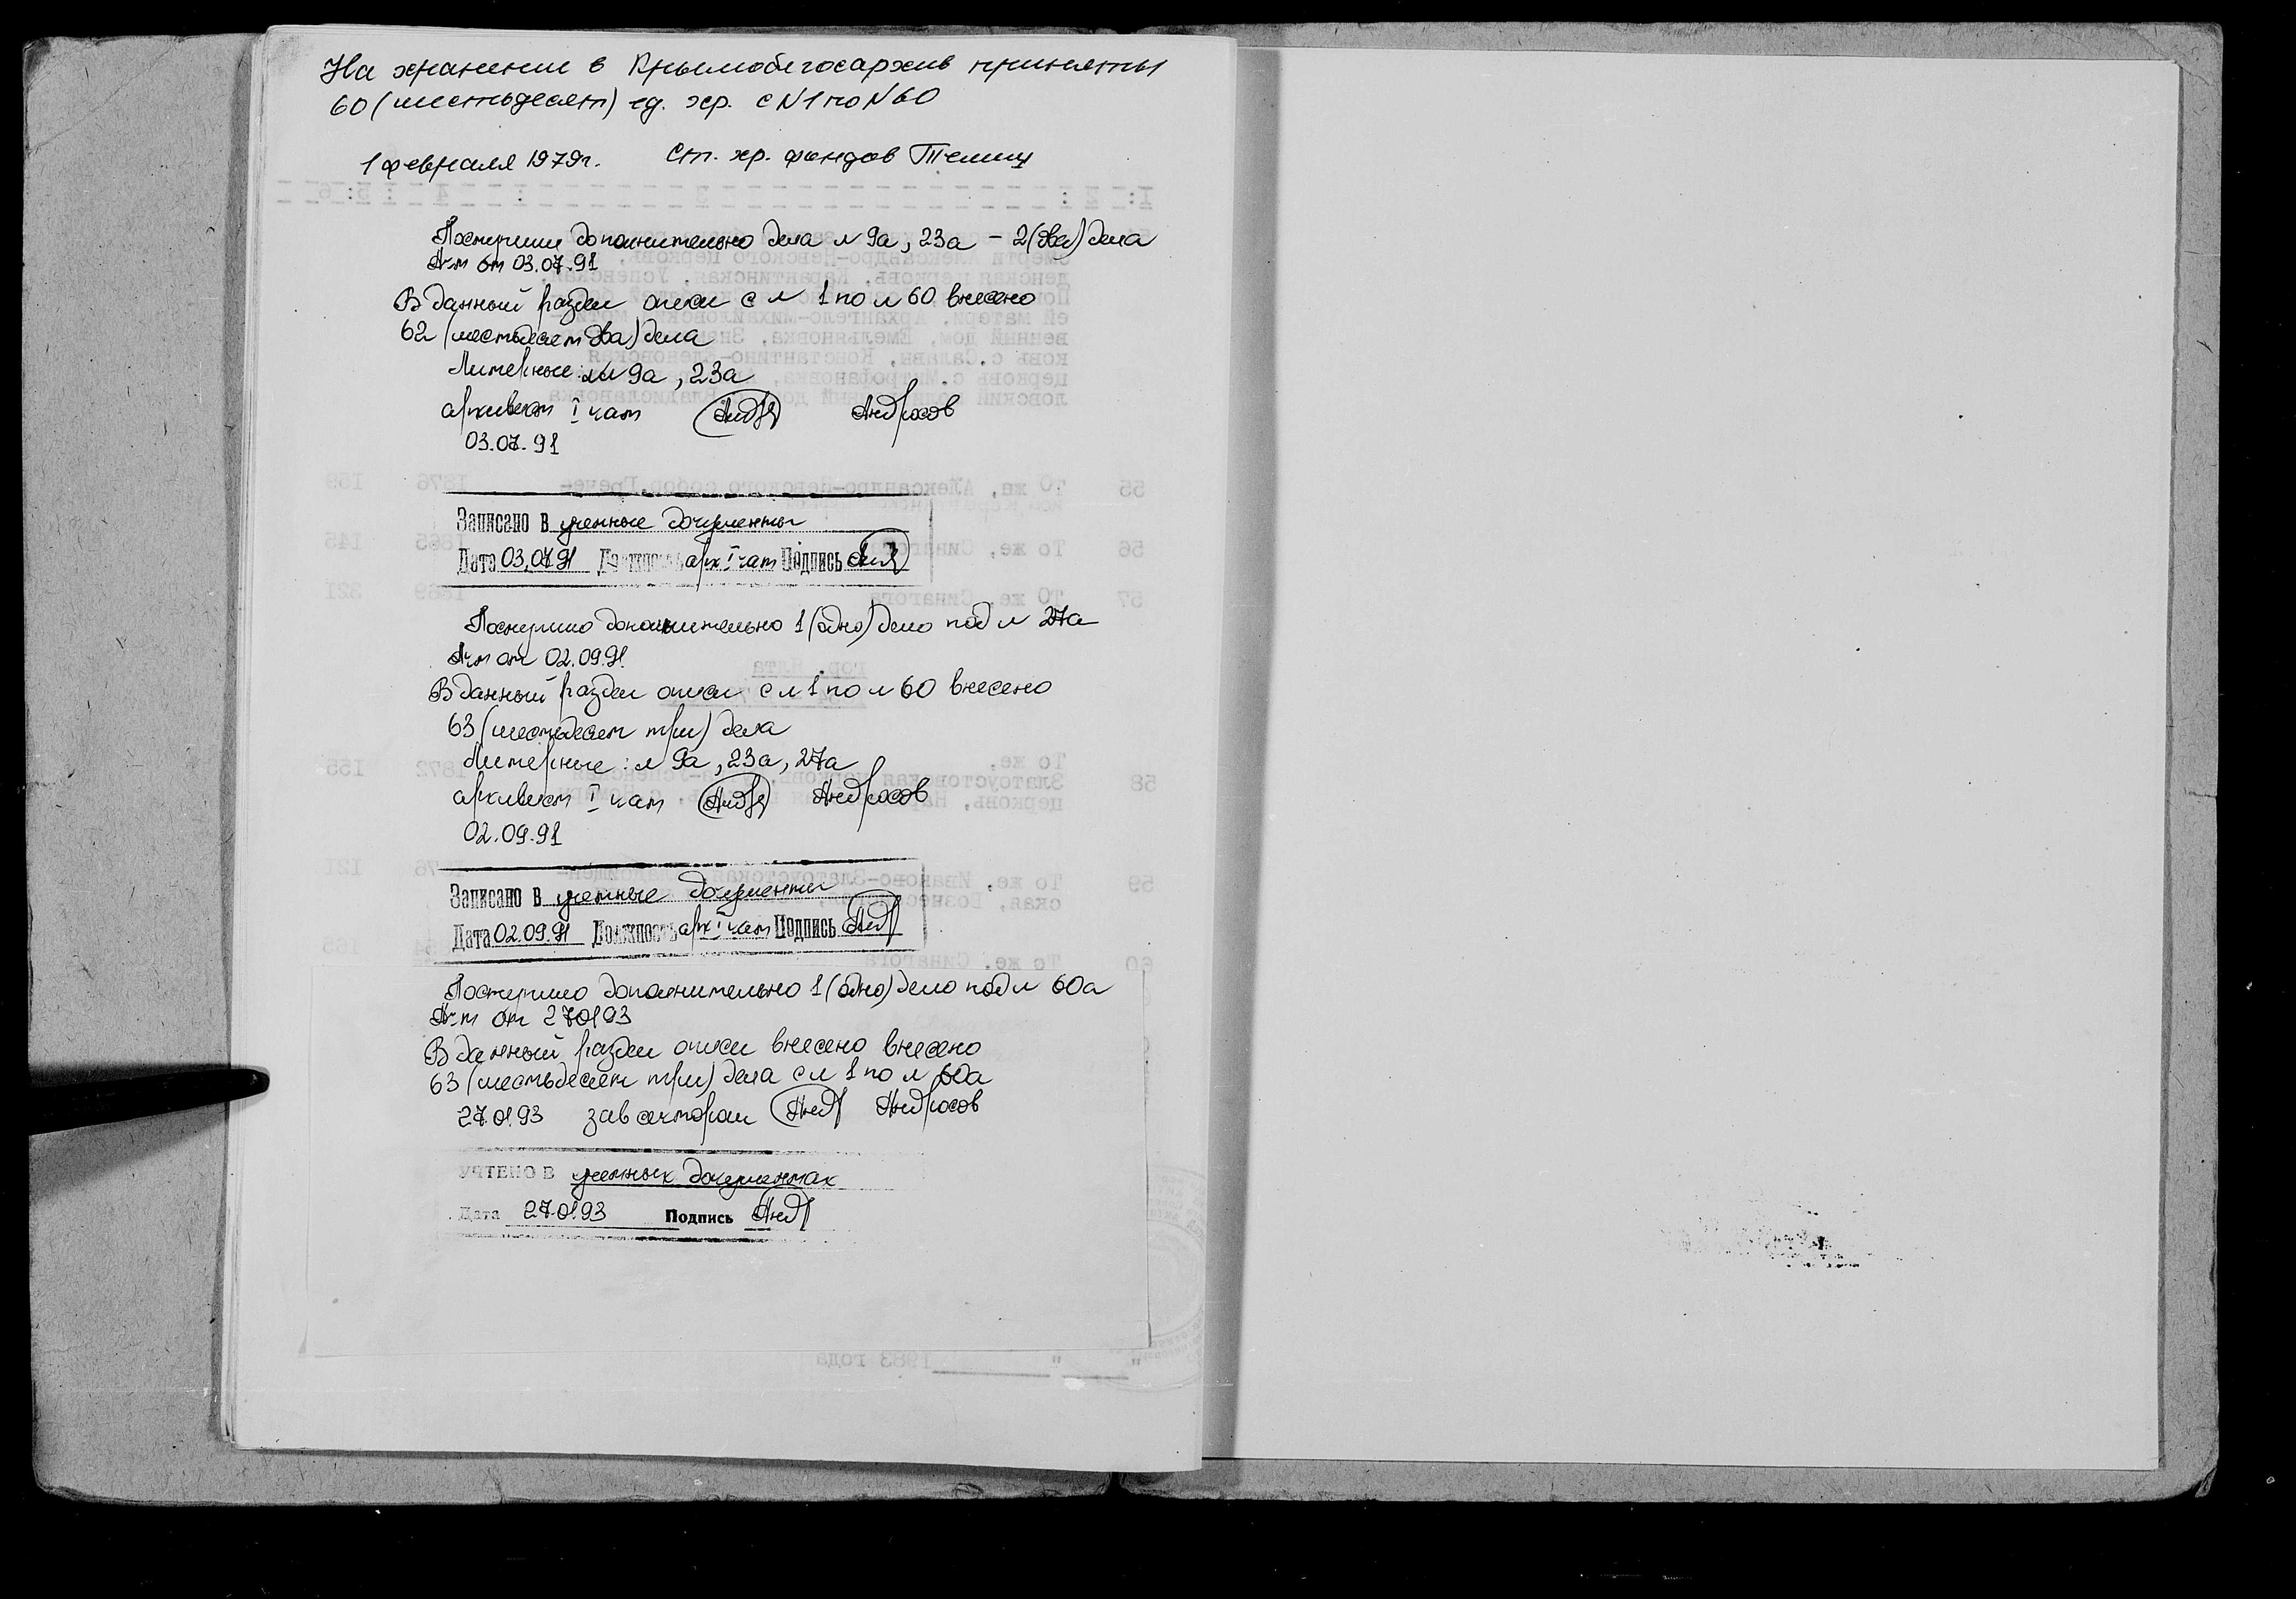 На хранение в Крымоблгосархив приняты
60 (шестьдесят) ед. хр. с N1 по N60
1 февраля 1979г. Ст. хр. фондов
Поступили дополнительно дела № 9а, 23а - 2(два) дела
Акт от 03.07.91
В данный раздел описи с № 1 по № 60 внесено
62 (шестьдесят два) дела
Литерные: №№ 9а, 23а
архивист I кат Андросов
03.07.91
Записано в учетные документы
Дата 03.07.91 Должность арх I кат Подпись
Поступило дополнительно 1 (одно) дело под № 27а
Акт от 02.09.91
В данный раздел описи с № 1 по № 60 внесено
63 (шестьдесят три) дела
Литерные: № 9а, 23а, 27а
архивист I кат Андросов
02.09.91
Записано в учетные документы
Дата 02.09.91 Должность арх I кат Подпись
Поступило дополнительно 1 (одно) дело под № 60а
Акт от 27.01.93
В данный раздел описи внесено внесено
63 (шестьдесят три) дела с № 1 по № 60а
27.01.93 зав сектором Андросов
УЧТЕНО В учетных документах
Дата 27.01.93 Подпись